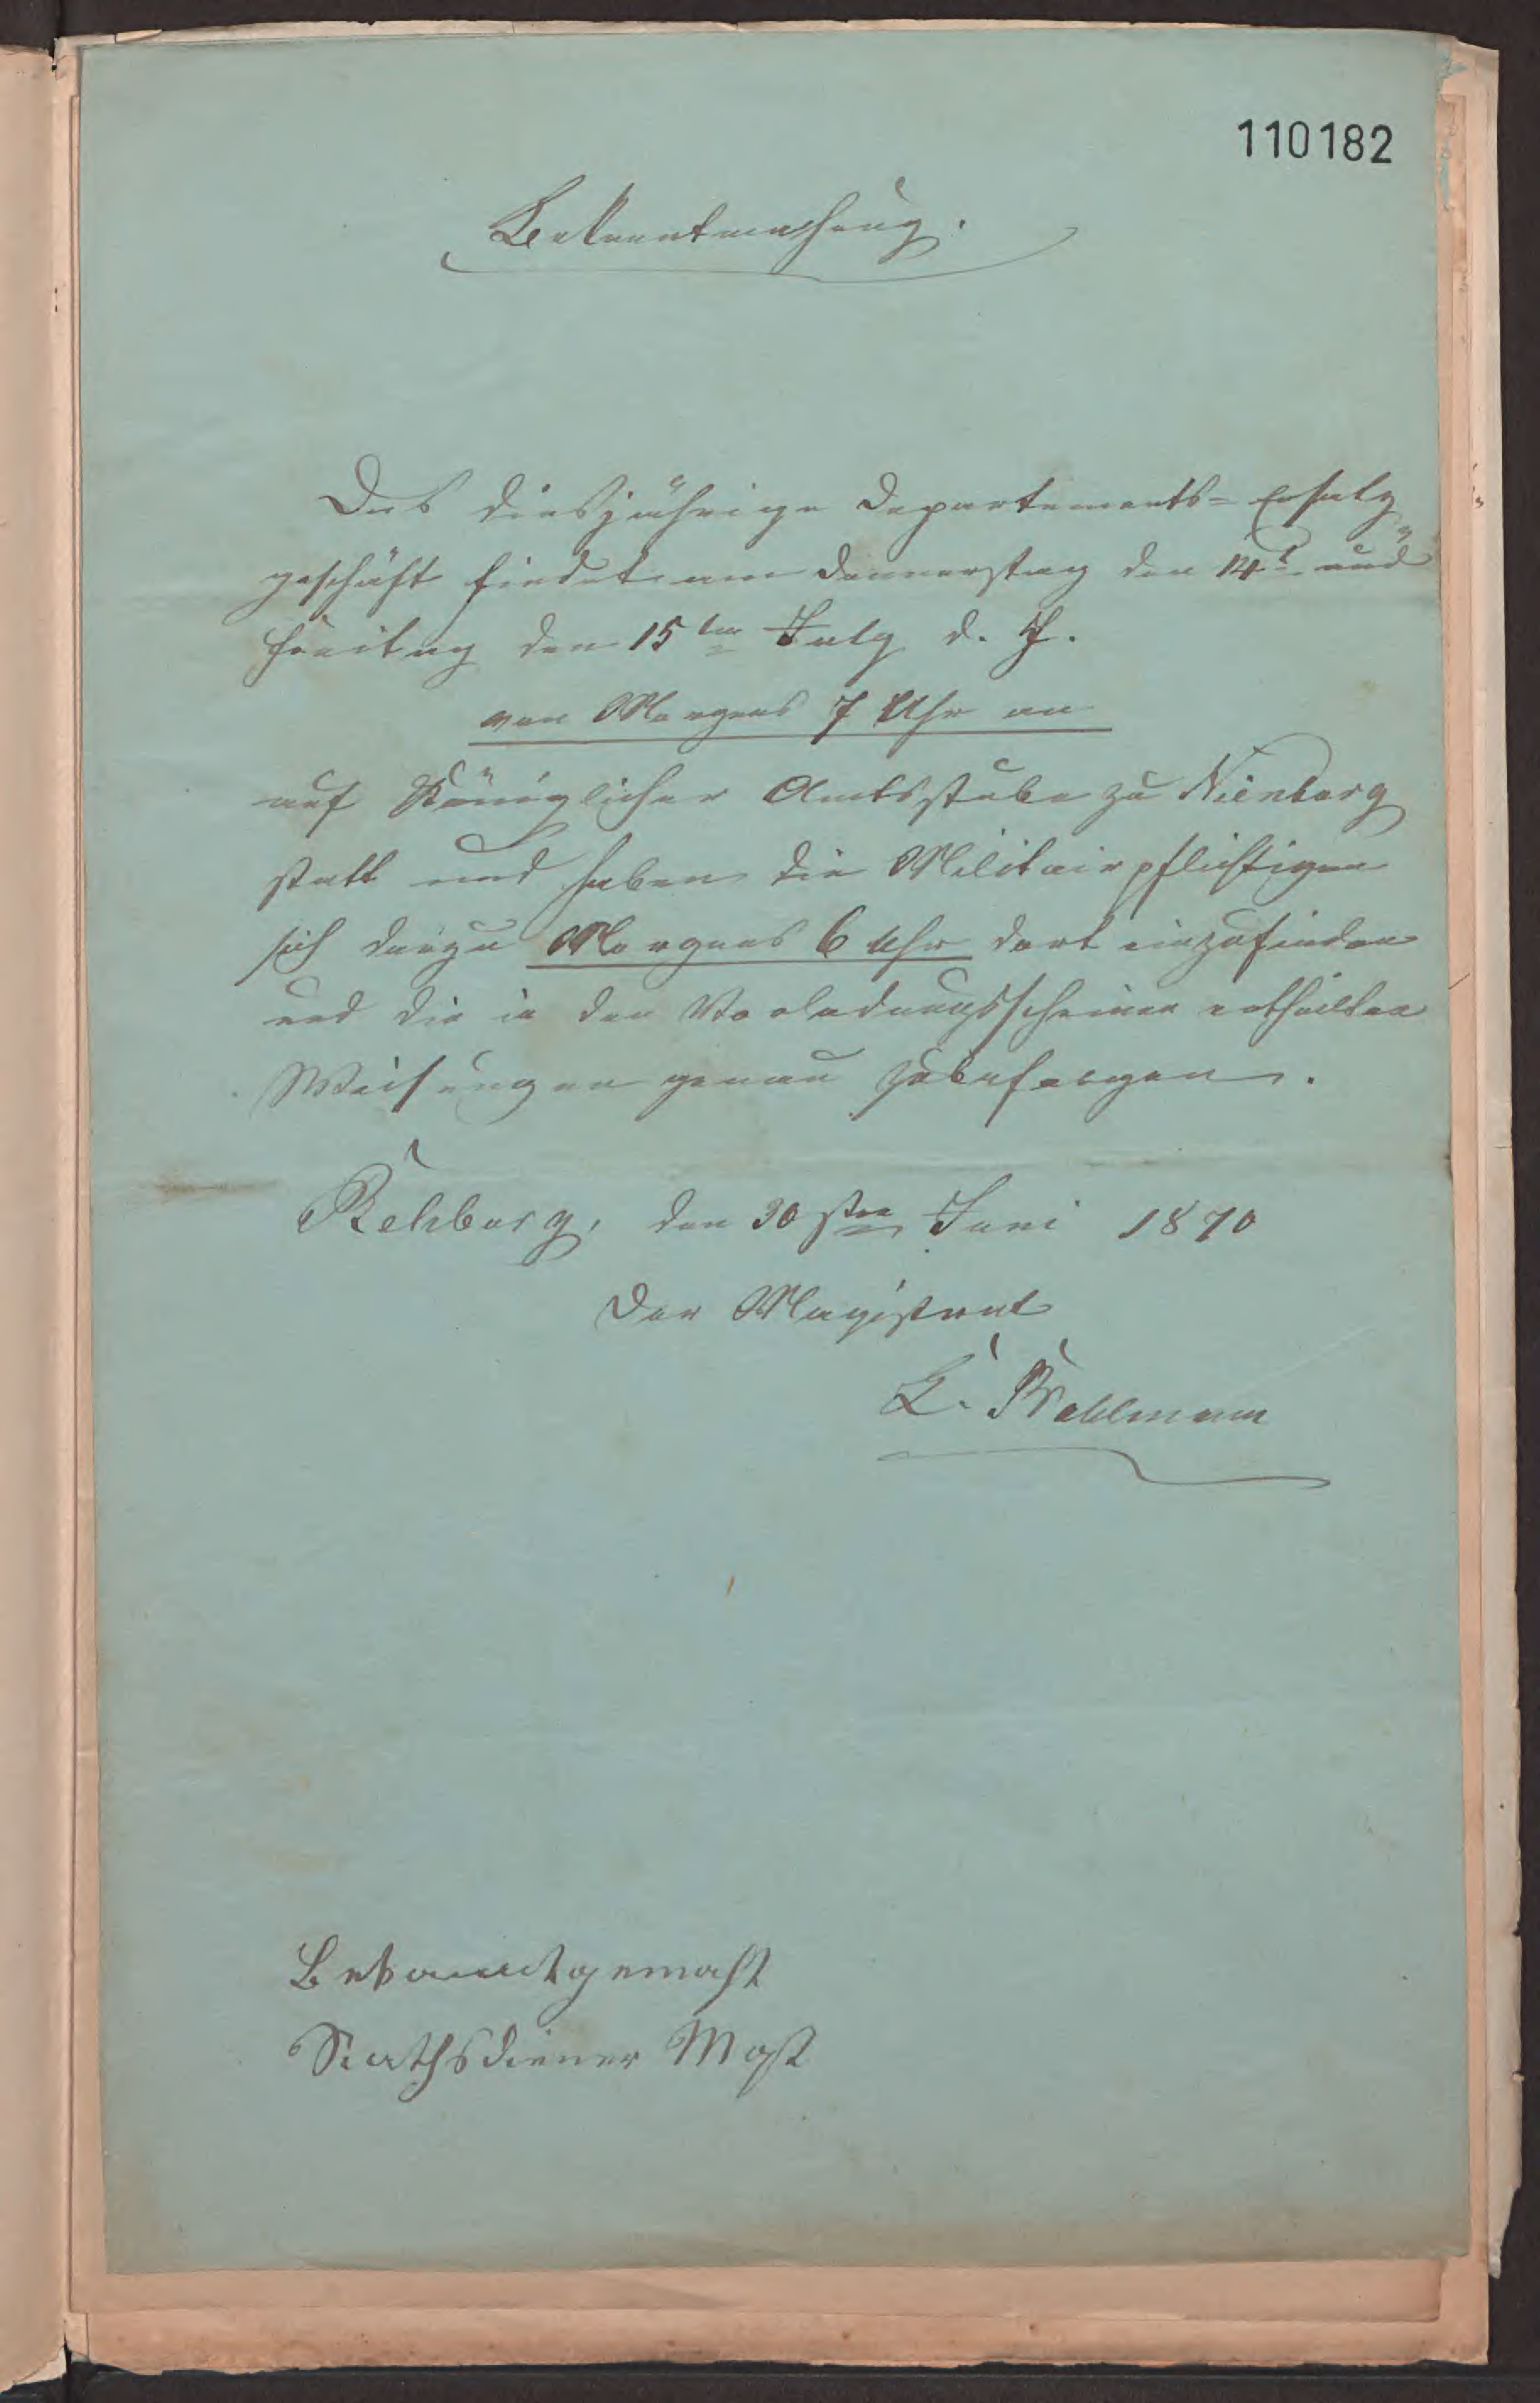 110182
Bekanntmachung.
Das diesjährige Departements-Ersatz
geschäft findet am Donnerstag den 14t und
Freitag den 15ten July d. J.
von Morgens 7 Uhr an
auf Königlicher Amtsstube zu Nienburg
statt und haben die Militairpflichtigen
sich dazu Morgens 6 Uhr dort einzufinden
und die in den Vorladungsscheinen ertheilten
Weisungen genau zu befolgen.
Rehburg, den 30sten Juni 1870
Der Magistrat
Bekanntgemacht
Rathsdiener Most